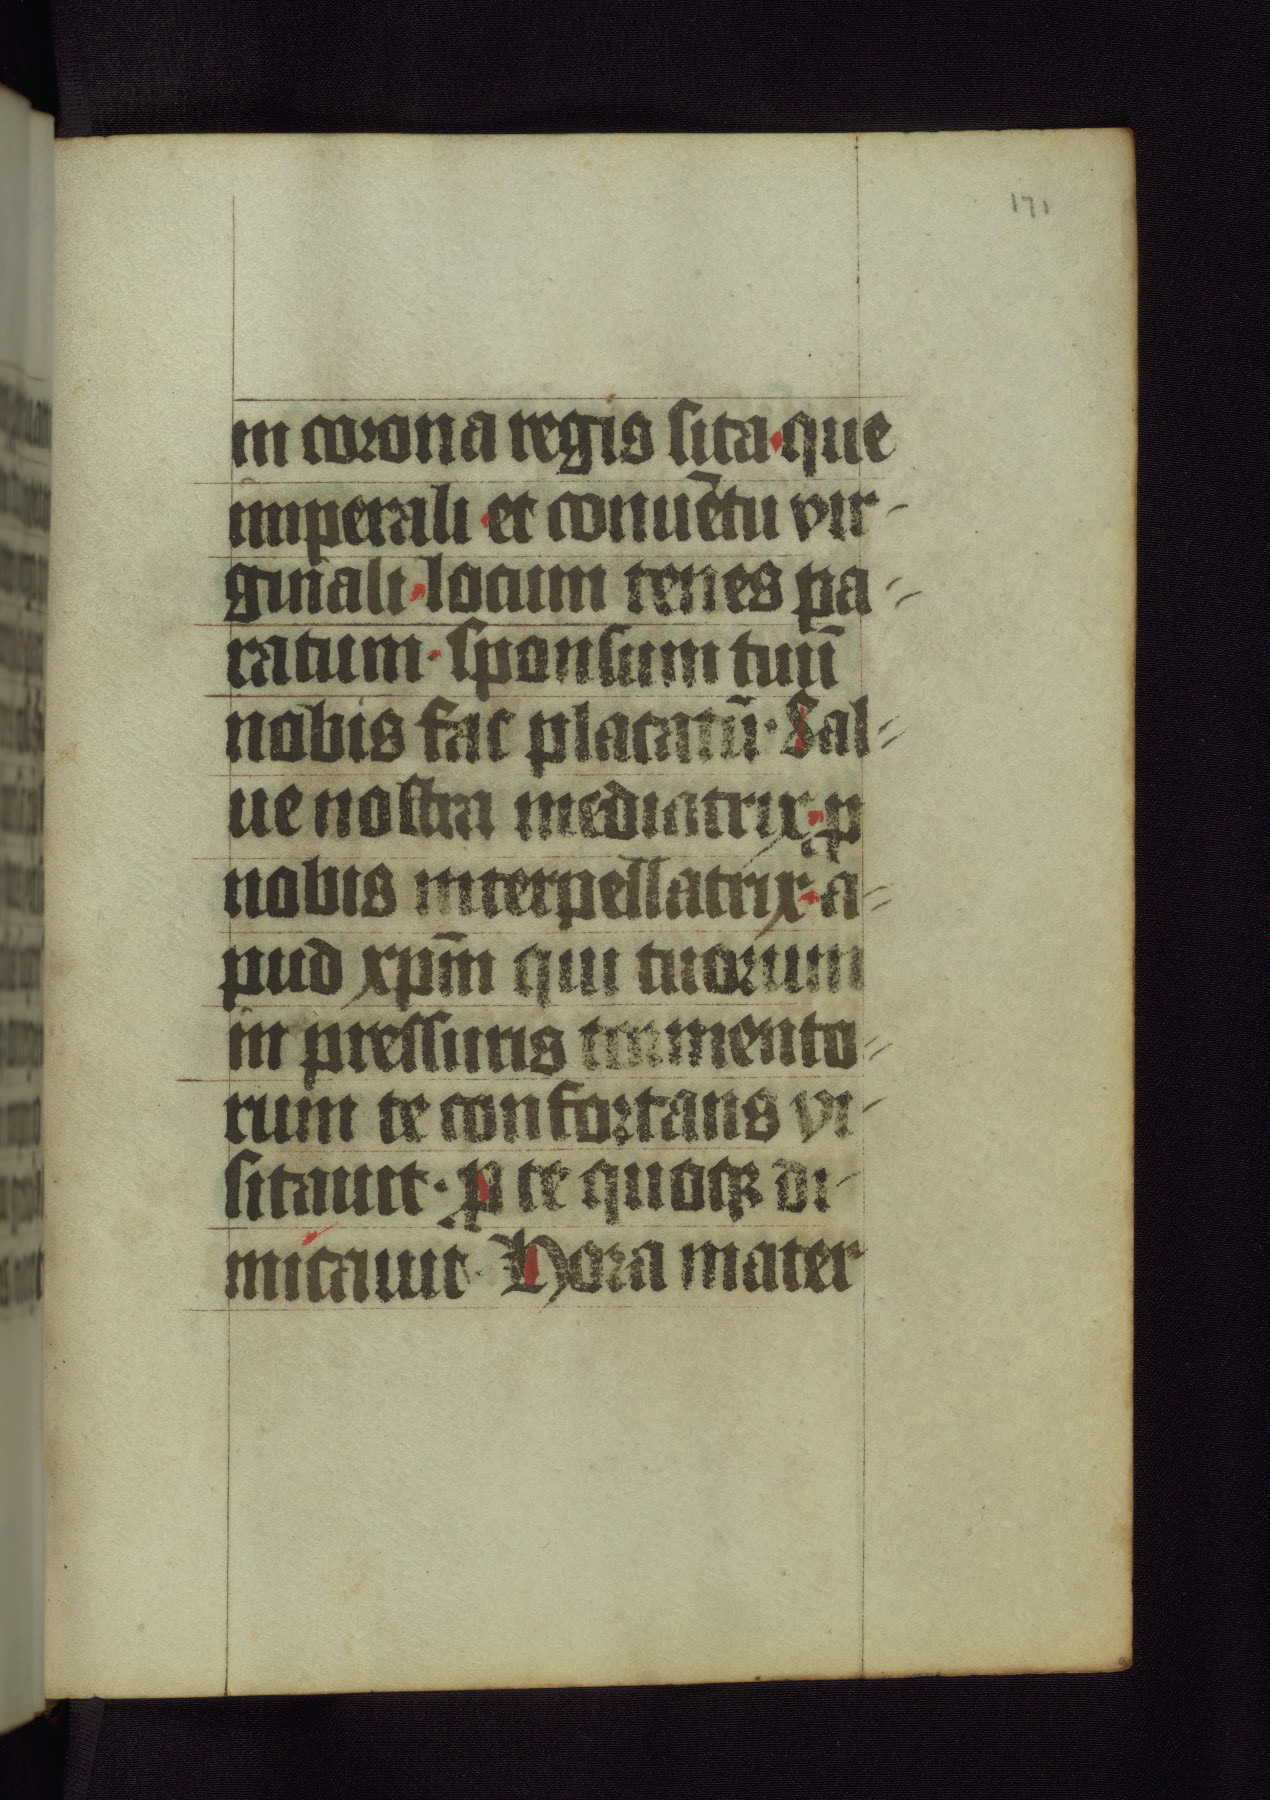 171
in corona regis sita · que
imperali · et conuētu vir-
ginali · locum tenes pa-
ratum · sponsum tuū
nobis fac placatū · Sal-
ue nostra mediatrix · ꝓ
nobis interpellatrix · a-
pud xp̄m qui tuorum
in pressuris tormento-
rum te confortans vi-
sitauit · ꝓ te quoqꝫ di-
micauit · Hora mater